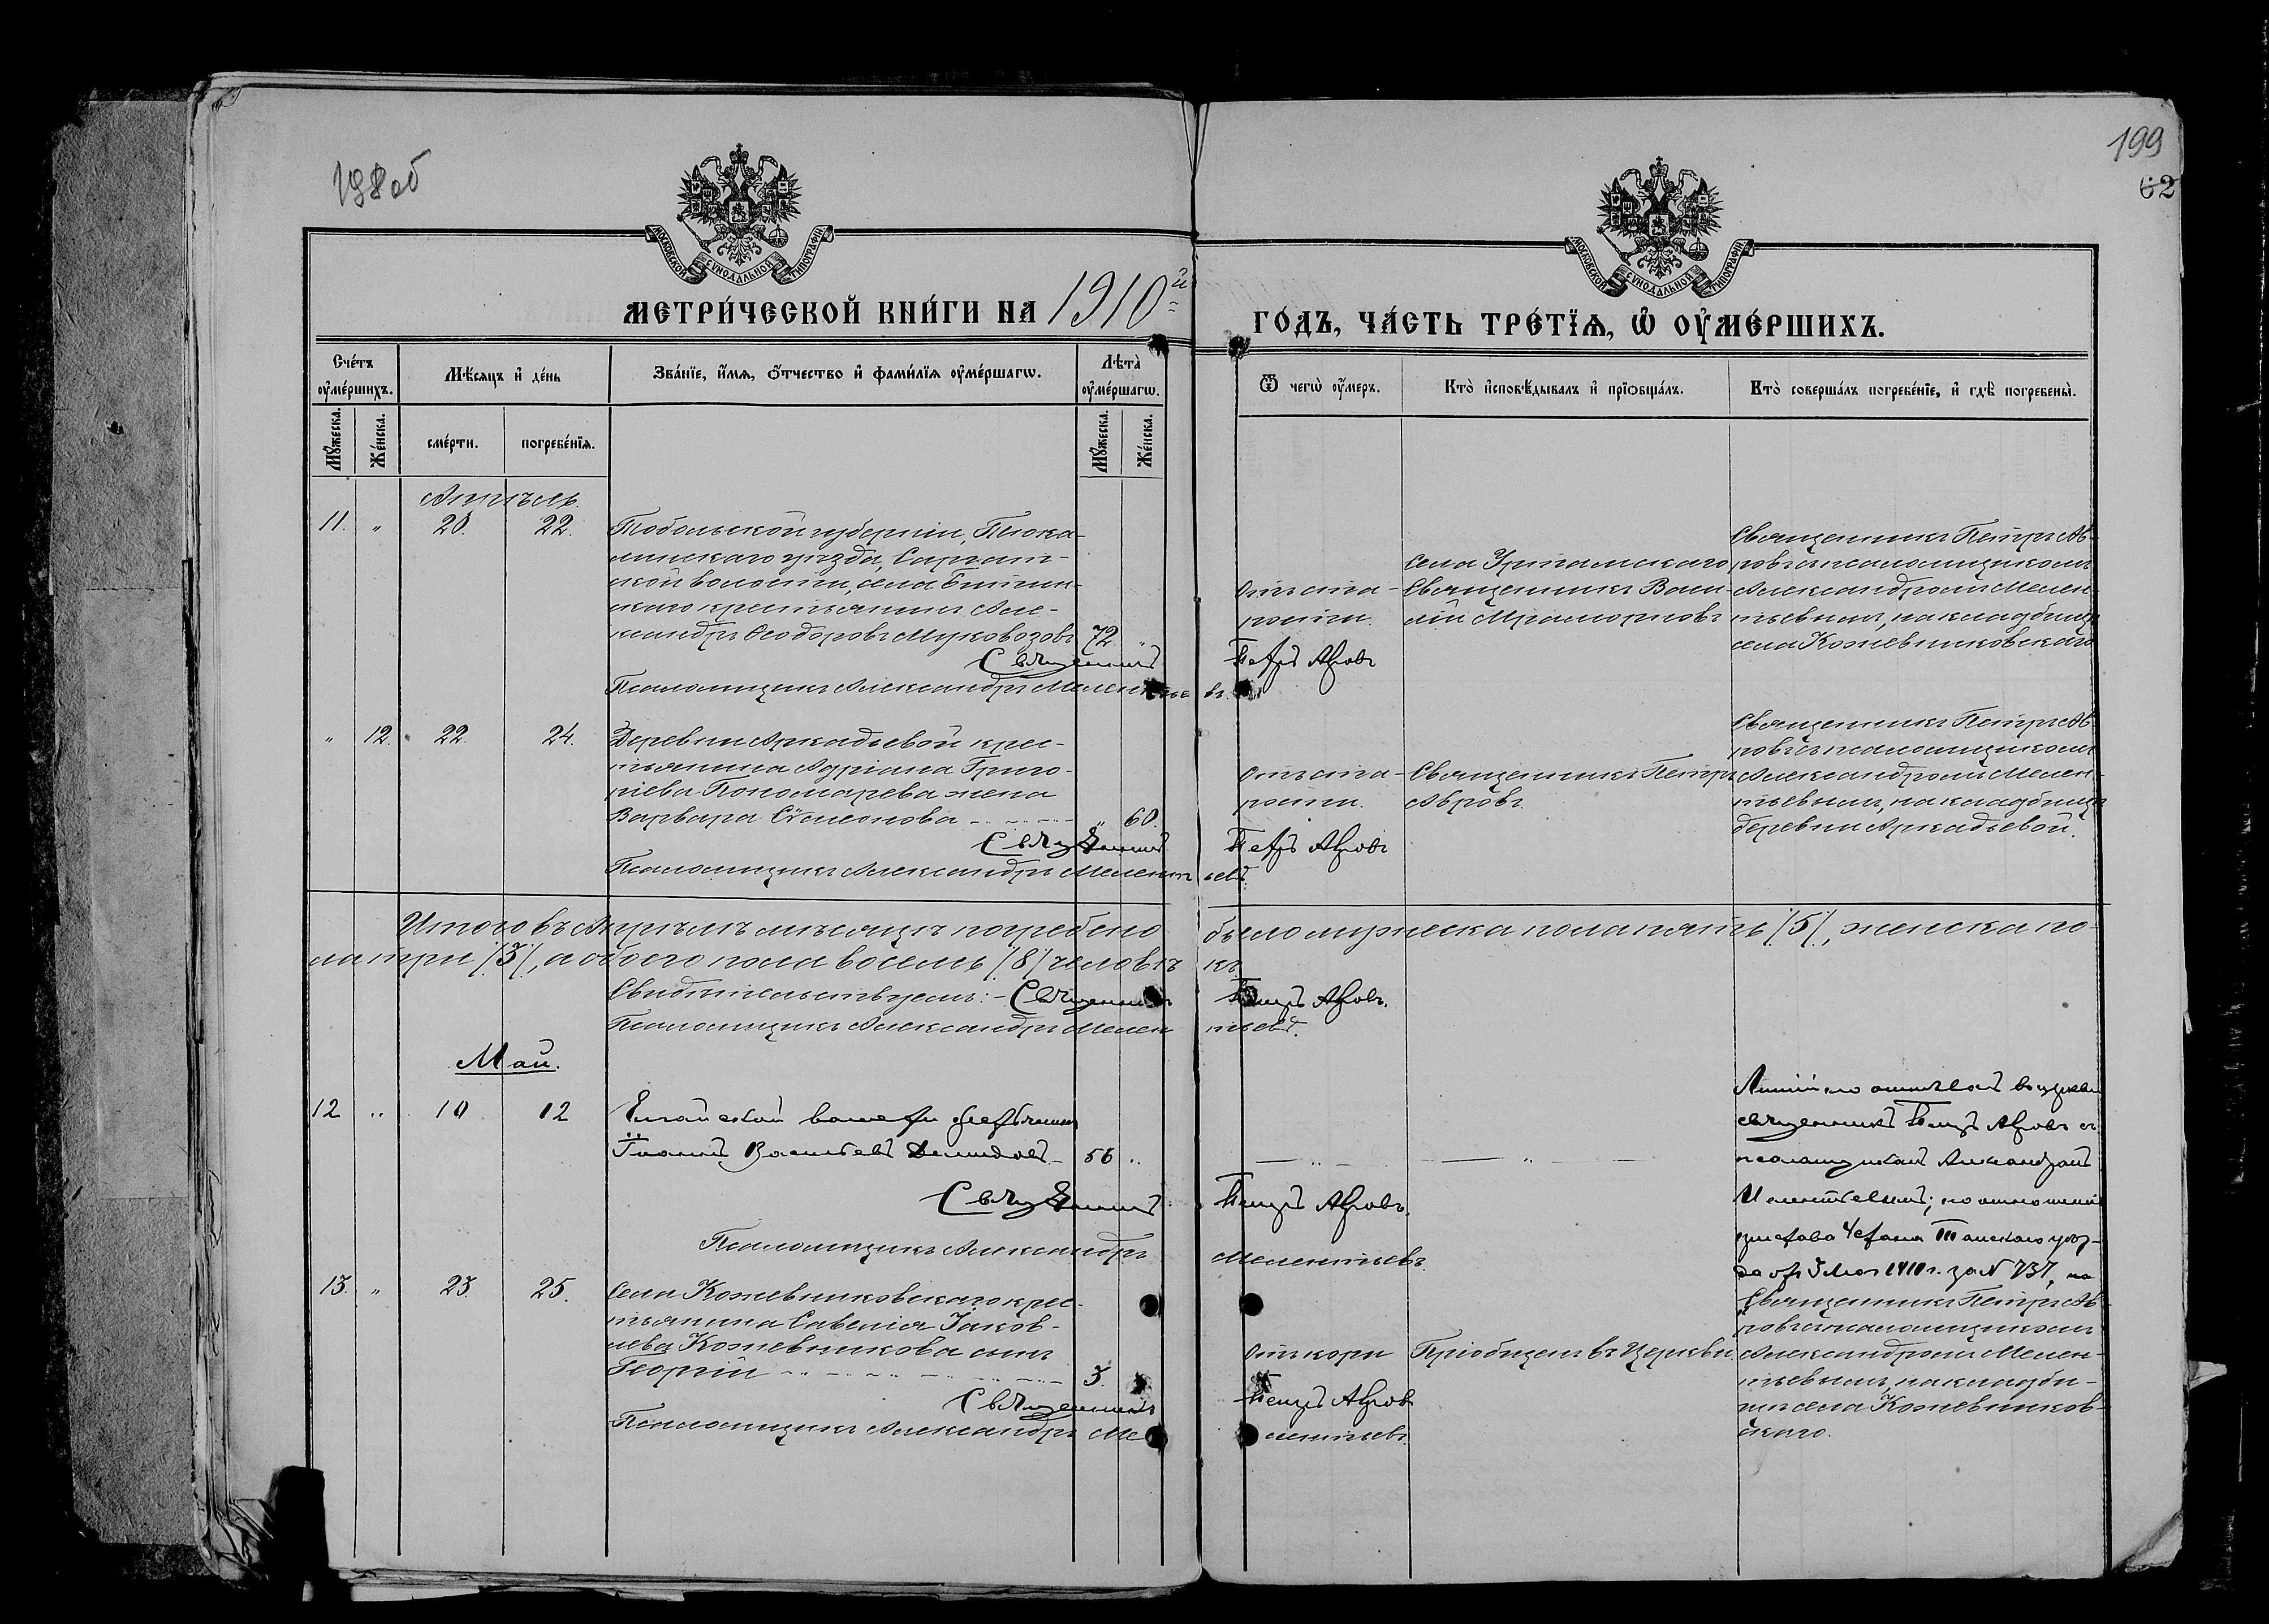 198 об
199
62
МОСКОВСКОЙ СУНОДАЛЬНОЙ ТИПОГРАФІИ
МОСКОВСКОЙ СУНОДАЛЬНОЙ ТИПОГРАФІИ
МЕТРИ́ЧЕСКОЙ КНИ́ГИ НА 1910й
ГО́ДЪ, ЧА́СТЬ ТРЕ́ТЇѦ, Ѡ҆ ОУ҆МЕ́РШИХЪ.
Сче́тъ оу҆ме́ршихъ.
Мѣ́сяцъ и҆ де́нь
Зва́нїе, и҆́мя, ѻ҆́тчество и҆ фами́лїя оу҆ме́ршагѡ.
Лѣ̀та оу҆ме́ршагѡ.
Ѿ чегѡ̀ оу҆́меръ.
Кто̀ и҆сповѣ́дывалъ и҆ прїѻбща́лъ.
Кто̀ соверша́лъ погребе́нїе, и҆ гдѣ̀ погребены̀.
Мꙋ́жеска.
Же́нска.
сме́рти.
погребе́нїя.
Мꙋ́жеска.
Же́нска.
Апрѣль.
11. " 20. 22. Тобольской губерніи, Тюка-
линскаго уѣзда, Саргат-
ской волости, села
скаго крестьянинъ Але-
ксандръ Ѳеодоровъ Муковозовъ 72 "
Отъ ста-
рости.
села Уртамскаго
Священникъ Васи-
лій Мраморновъ
Священникъ Петръ Ав-
ровъ съ псаломщикомъ
Александромъ Мелен-
тьевымъ, на кладбищѣ
села Кожевниковскаго
Священникъ Петръ Авровъ
Псаломщикъ Александръ Мелентьевъ.
" 12. 22. 24. Деревни Аркадьевой крес-
тьянина Адріана Григо-
ріева Пономарева жена
Варвара Сѷмеонова " 60.
Отъ ста-
рости.
Священникъ Петръ
Авровъ.
Священникъ Петръ Ав-
ровъ съ псаломщикомъ
Александромъ Мелен-
тьевымъ, на кладбищѣ
деревни Аркадьевой.
Священникъ Петръ Авровъ
Псаломщикъ Александръ Мелентьевъ.
Итого въ Апрѣлѣ мѣсяцѣ погребено было мужеска пола пять /5/, женска по-
ла три /3/, а обоего пола восемь /8/ человѣкъ.
Свидѣтельствуемъ: – Священникъ Петръ Авровъ.
Псаломщикъ Александръ Мелентьевъ.
Май.
12 " 10 12 волости крестьянинъ
Іоаннъ Васильевъ Демидовъ 56 "
— " —
— " —
отпѣватъ въ церкви
священникъ Петръ Авровъ съ
псаломщикомъ Александромъ
Мелентьевымъ; по отношенію
пристава 4 стана Томскаго уѣз-
да отъ 1910 г. за № 737, на
Священникъ Петръ Авровъ.
Псаломщикъ Александръ Мелентьевъ.
13. " 23. 25. Села Кожевниковскаго крес-
тьянина Савелія Іаков-
лева Кожевникова сынъ
Георгій 3.
Отъ кори
Пріобщенъ въ Церкви.
Священникъ Петръ Ав-
ровъ съ псаломщикомъ
Александромъ Мелен-
тьевымъ, на кладби-
щѣ села Кожевников-
скаго.
Священникъ Петръ Авровъ
Псаломщикъ Александръ Мелентьевъ.